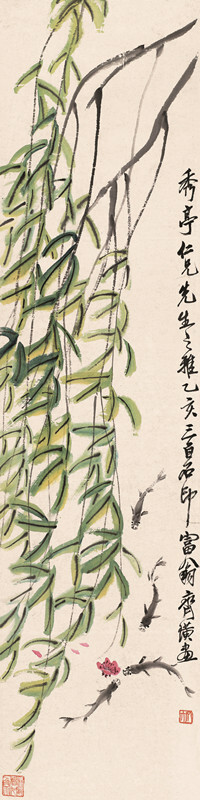 秀亭仁兄先生之雅乙亥三百石印富翁齊璜画